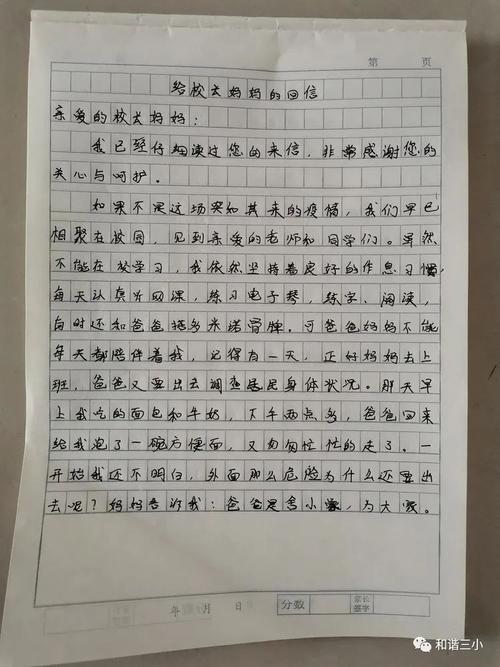 第 页
给校长妈妈的回信
亲爱的校长妈妈：
我已经仔细读过您的来信，非常感谢您的
关心与呵护。
如果不是这场突如其来的疫情，我们早已
相聚在校园，见到亲爱的老师和同学们。虽然
不能在校学习，我依然坚持着良好的作息习惯，
每天认真听网课，练习电子琴，练字、阅读，
有时还和爸爸搭多米诺骨牌。可爸爸妈妈不能
每天都陪伴着我，记得有一天，还好妈妈去上
班，爸爸又要出去调查居民身体状况。那天早
上我吃的面包和牛奶，下午两点多，爸爸回来
给我泡了一碗方便面，又匆匆忙忙的走了。一
开始我还不明白，外面那么危险为什么还要出
去呢？妈妈告诉我：爸爸是舍小家，为大家。
年 月 日 分数 家长签字
和谐三小